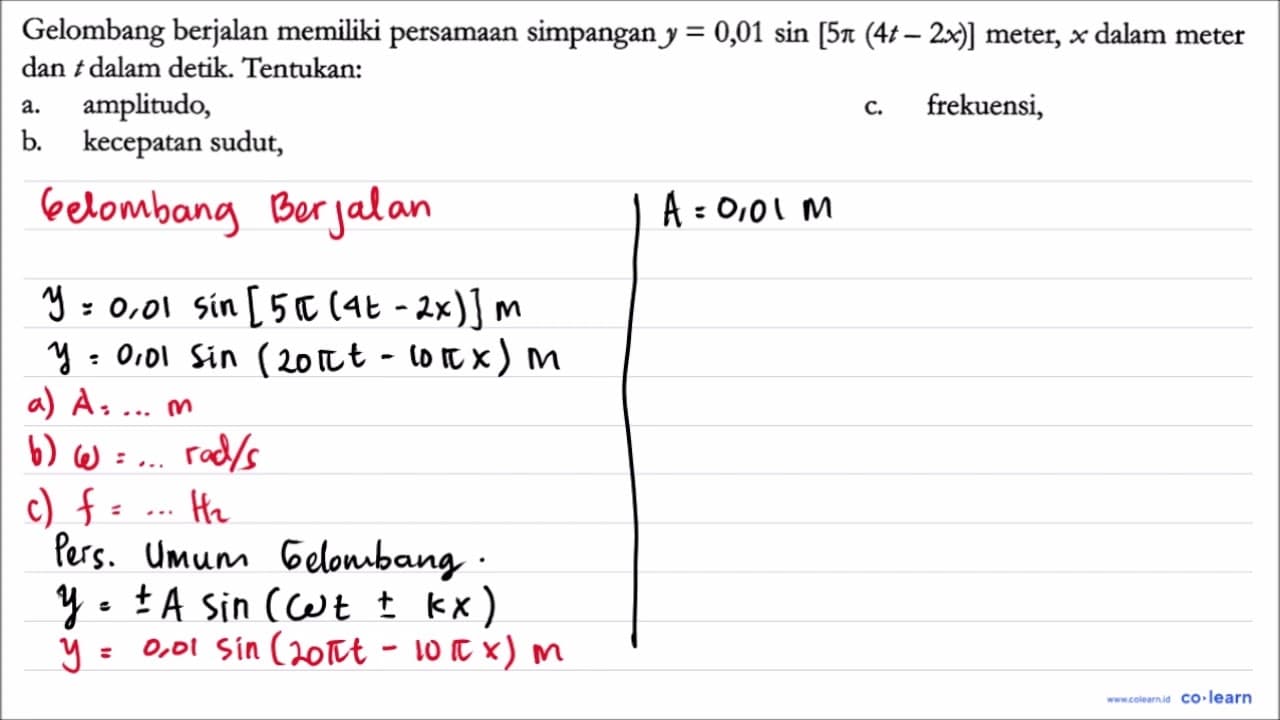 Gelombang berjalan memiliki persamaan simpangan y = 0,01 sin [5π (4t – 2x)] meter, x dalam meter
dan t dalam detik. Tentukan:
a. amplitudo,
c. frekuensi,
b. kecepatan sudut,
Gelombang Berjalan
y = 0,01 sin [5π (4t - 2x)] m
y = 0,01 sin (20πt - 10πx) m
a) A = ... m
b) ω = ... rad/s
c) f = ... Hz
Pers. Umum Gelombang.
y = ± A sin (ωt ± kx)
y = 0,01 sin (20πt - 10πx) m
A = 0,01 M
www.colearn.id co·learn